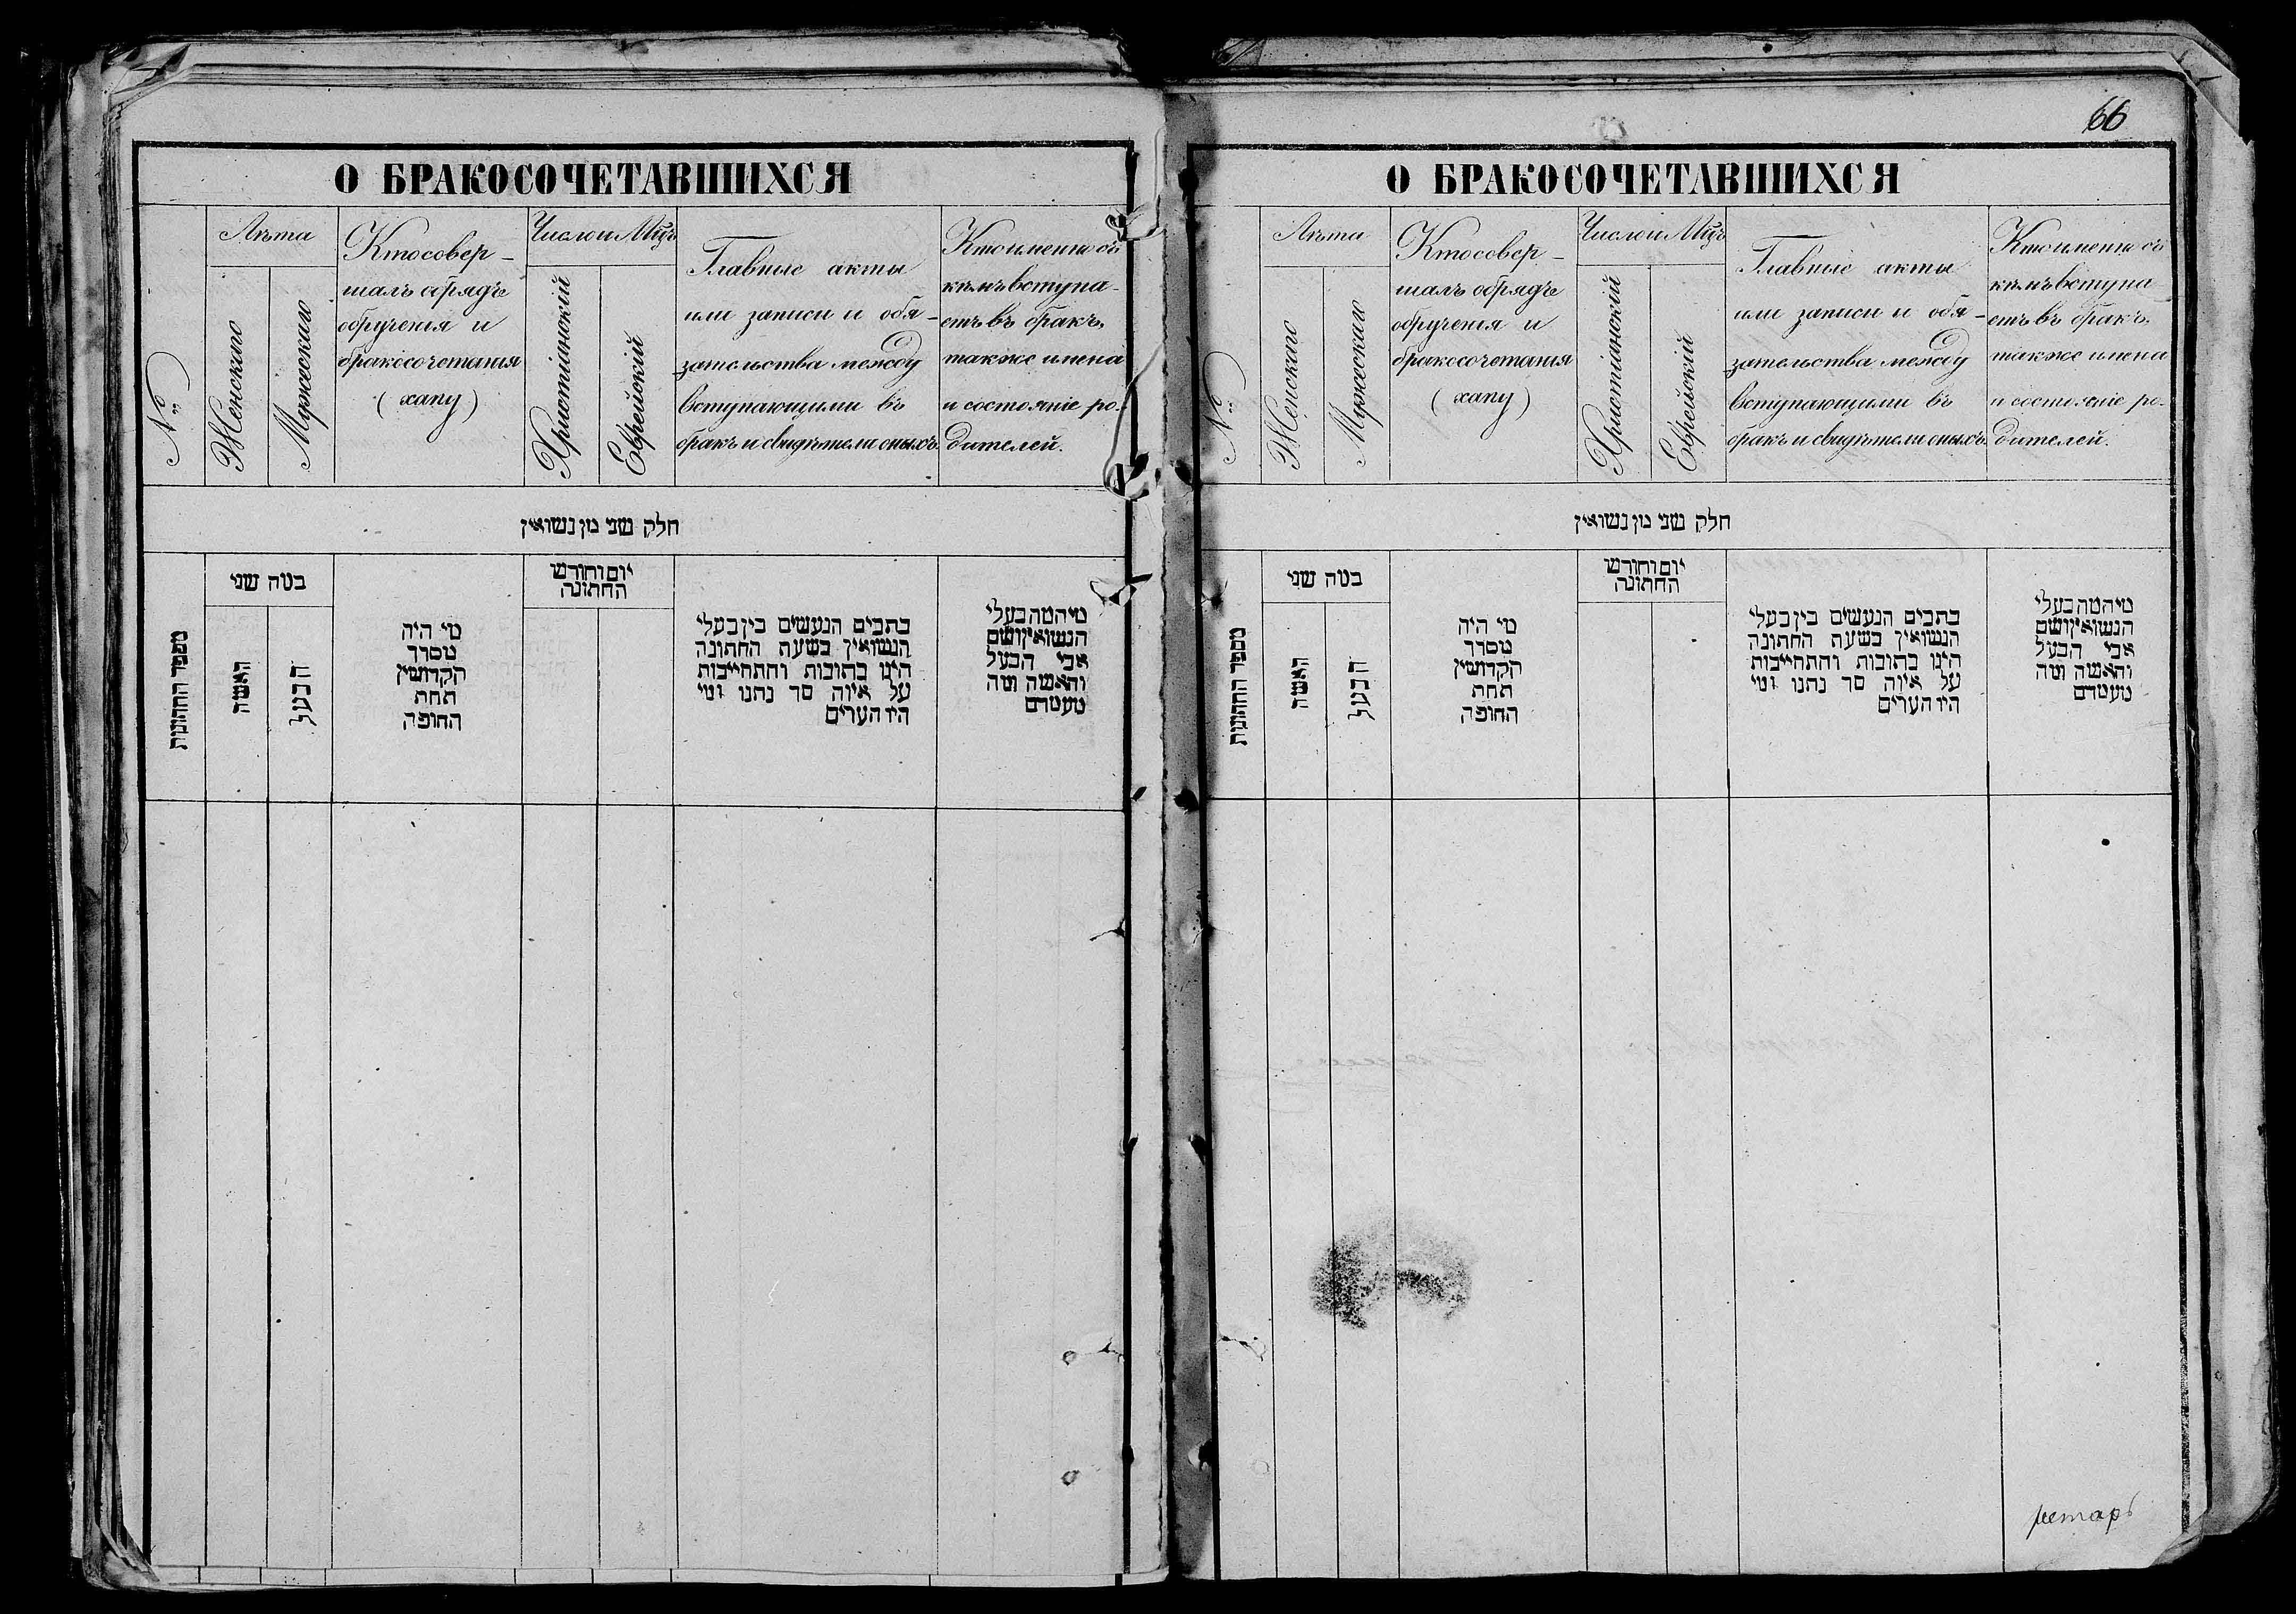 О БРАКОСОЧЕТАВШИХСЯ
№
Лѣта
Женскаго
Мужескаго
Кто совер-
шалъ обрядъ
обрученія и
бракосочетанія
(хапу)
Число и Мѣцъ
Христіанскій
Еврейскій
Главные акты
или записи и обя-
зательства между
вступающими въ
бракъ и свидѣтели оныхъ.
Кто именно съ
кѣмъ вступа-
етъ въ бракъ,
также имена
и состояніе ро-
дителей.
חלק שני מן נשואין
מספר החתונות
במה שני
האשה
הבעל
מי היה
מסדר
הקדושין
תחת
החופה
יום וחודש
החתונה
כתבים הנעשים בין בעלי
הנשואין בשעת החתונה
היינו כתובות והתחייבות
על איזה סך נתנו ומי
היו העדים
מיהמה בעלי
הנשואין ושם
אבי הבעל
והאשה ומה
מעמדם
66
О БРАКОСОЧЕТАВШИХСЯ
№
Лѣта
Женскаго
Мужескаго
Кто совер-
шалъ обрядъ
обрученія и
бракосочетанія
(хапу)
Число и Мѣцъ
Христіанскій
Еврейскій
Главные акты
или записи и обя-
зательства между
вступающими въ
бракъ и свидѣтели оныхъ.
Кто именно съ
кѣмъ вступа
етъ въ бракъ,
также имена
и состояніе ро-
дителей.
חלק שני מן נשואין
מספר החתונות
במה שני
האשה
הבעל
מי היה
מסדר
הקדושין
תחת
החופה
יום וחודש
החתונה
כתבים הנעשים בין בעלי
הנשואין בשעת החתונה
היינו כתובות והתחייבות
על איזה סך נתנו ומי
היו העדים
מיהמה בעלי
הנשואין ושם
אבי הבעל
והאשה ומה
מעמדם
ретарь